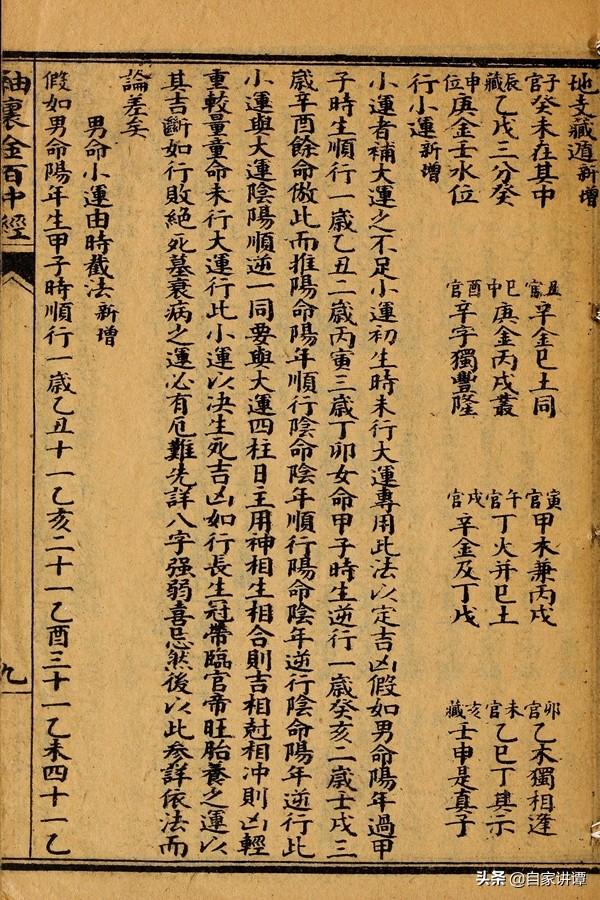 地支藏遁新增
子宮癸未在其中 丑宮辛金巳土同 寅宮甲木兼丙戌 卯宮乙木獨相逢
辰藏乙戌三分癸 巳中庚金丙戌叢 午宮丁火并巳土 未宮乙巳丁其示
申位庚金壬水位 酉宮辛字獨豐隆 戌宮辛金及丁戌 亥藏壬申是真子
行小運新增
小運者補大運之不足小運初生時未行大運專用此法以定吉凶假如男命陽年過甲
子時生順行一歲乙丑二歲丙寅三歲丁卯女命甲子時生逆行一歲癸亥二歲壬戌三
歲辛酉餘命倣此而推陽命陽年順行陰命陰年順行陽命陰年逆行陰命陽年逆行此
小運與大運陰陽順逆一同要與大運四柱日主用神相生相合則吉相尅相冲則凶輕
重較量童命未行大運行此小運以决生死吉凶如行長生冠帶臨官帝旺胎養之運以
其吉斷如行敗絕死墓衰病之運必有厄難先詳八字强弱喜忌然後以此參詳依法而
論差矣
男命小運由時截法新增
假如男命陽年生甲子時順行一歲乙丑十一乙亥二十一乙酉三十一乙未四十一乙
袖裏金百中經 九
头条 @自家讲谭